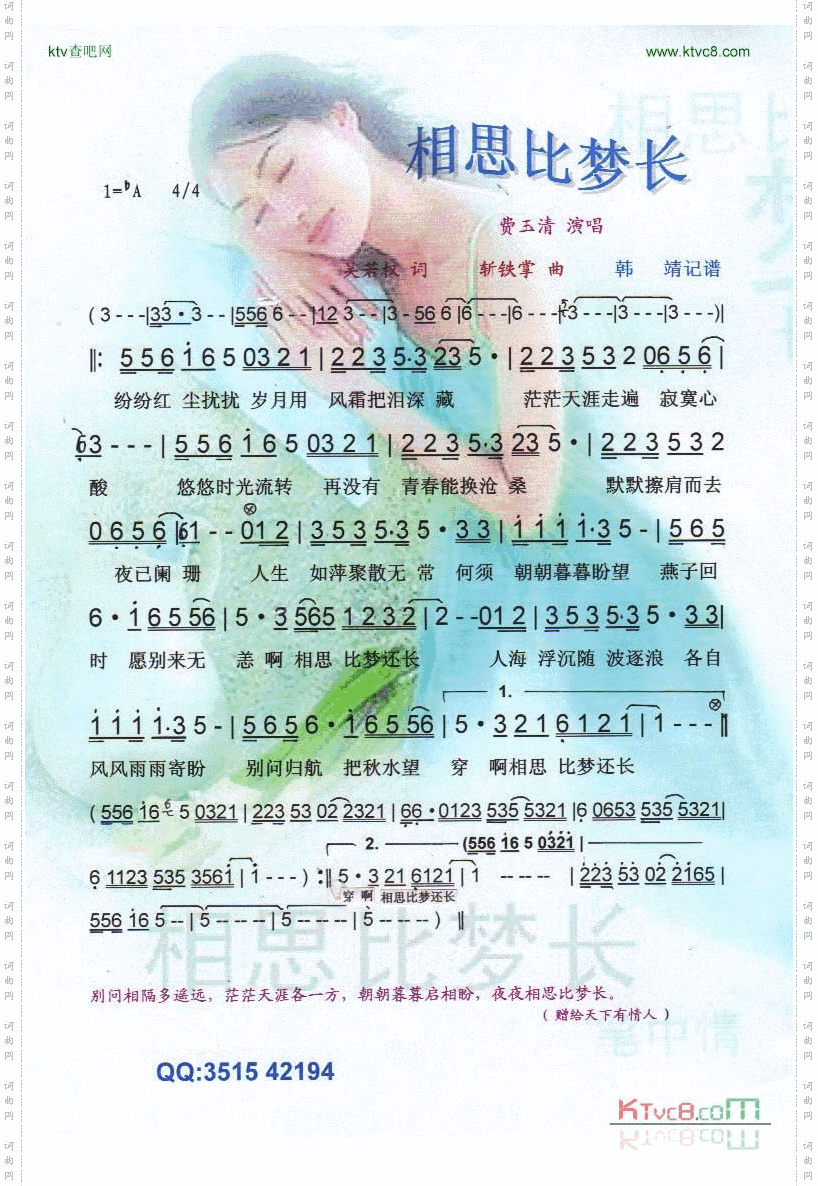 ktv查吧网
www.ktvc8.com
相思比梦长
1=♭A 4/4
费玉清 演唱
关若权 词 斩铁掌 曲 韩 靖记谱
( 3 - - -|33·3 - - |556 6 - - |12 3 - - |3 - 56 6 |6 - - -|6 - - -|3 - - -|3 - - -|3 - - -)|
‖: 556 165 0321 | 223 5·3 23 5· | 223 532 0656 |
纷纷红 尘扰扰 岁月用 风霜把泪深 藏 茫茫天涯走遍 寂寞心
63 - - - | 556 165 0321 | 223 5·3 23 5· | 223 532
酸 悠悠时光流转 再没有 青春能换沧 桑 默默擦肩而去
0656 |61 - - 012 | 353 5·3 5· 33 | 111 1·3 5 - | 565
夜已阑 珊 人生 如萍聚散无 常 何须 朝朝暮暮盼望 燕子回
6· 16556 | 5· 3 565 1232 | 2 - - 012 | 353 5·35· 33|
时 愿别来无 恙 啊 相思 比梦还长 人海 浮沉随 波逐浪 各自
1.
111 1·3 5 - | 565 6· 16556 | 5· 321 6121 | 1 - - - ‖
风风雨雨寄盼 别问归航 把秋水望 穿 啊相思 比梦还长
( 556 16 5 0321 | 223 53 02 2321 | 66·0123 535 5321 |6 0653 535 5321|
2. (556 16 5 0321 |
6 1123 535 3561 | 1 - - - ) :‖ 5·3 21 6121 | 1 -- -- -- | 223 53 02 2165 |
穿 啊 相思比梦还长
556 16 5 -- | 5 -- -- -- | 5 -- -- -- | 5 -- -- -- ) ‖
相思比梦长
别问相隔多遥远，茫茫天涯各一方，朝朝暮暮启相盼，夜夜相思比梦长。
（ 赠给天下有情人 ）
QQ:3515 42194
KTvc8.com